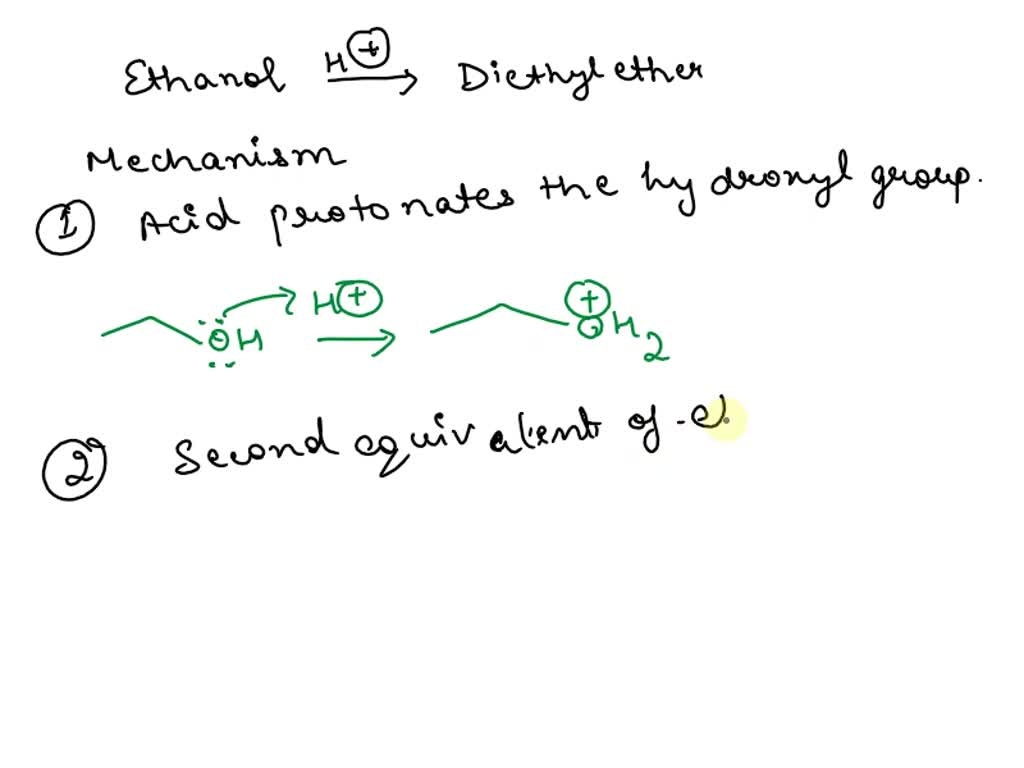 Ethanol H⊕ → Diethylether
Mechanism
① Acid protonates the hydroxyl group.
ÖH H⊕ → ⊕OH₂
② Second equivalent of